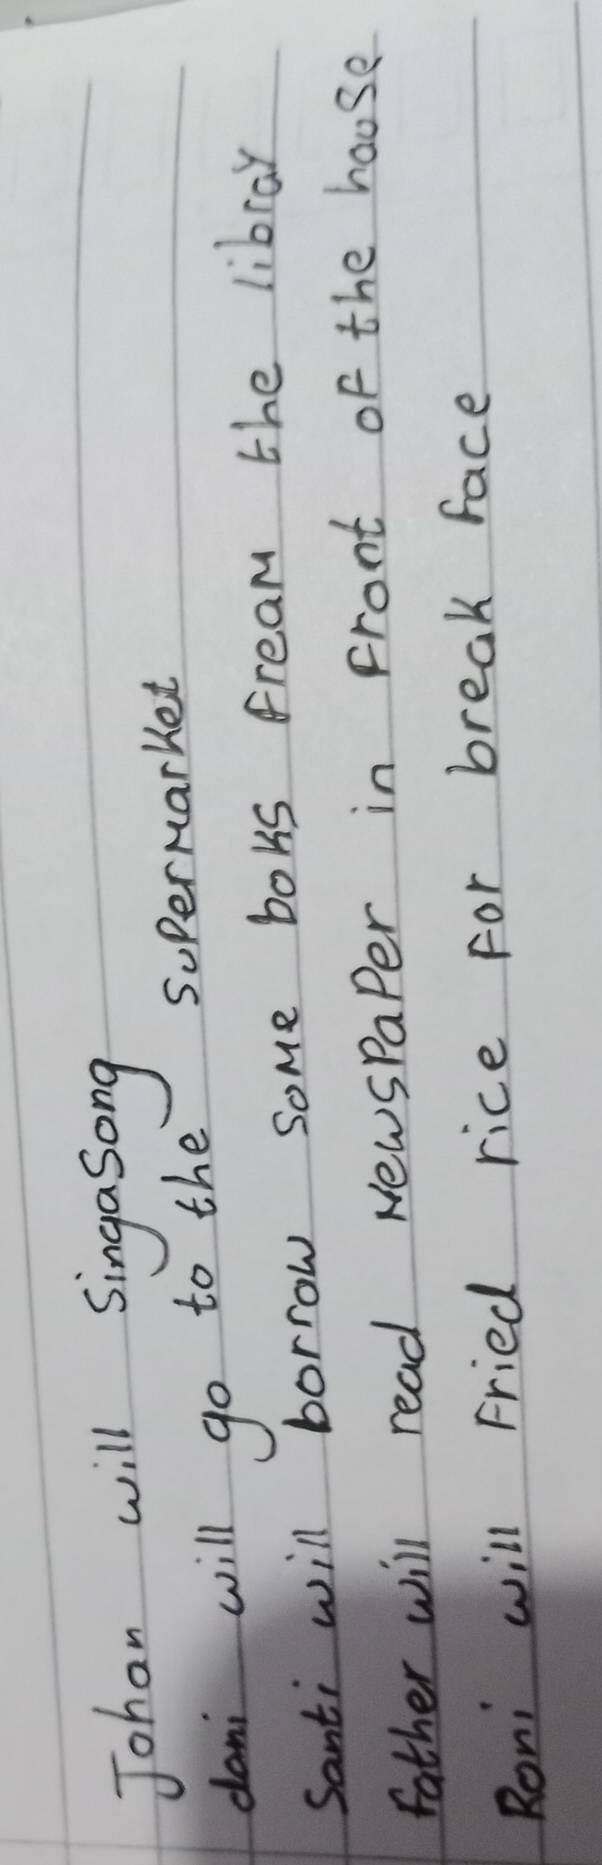 Johan will SingaSong
dani will go to the supermarket
Santi will borrow some boks fream the libray
father will read newspaper in front of the house
Roni will Fried rice for break face